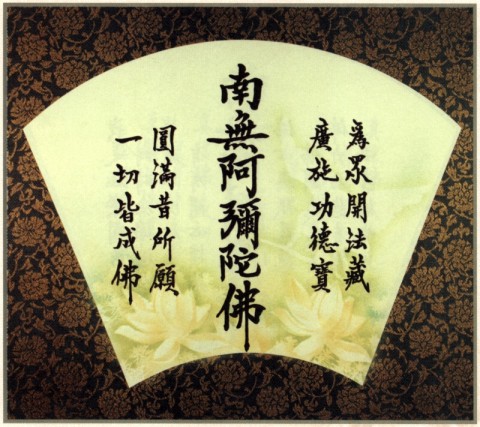 為眾開法藏
廣施功德寶
南無阿彌陀佛
圓滿昔所願
一切皆成佛